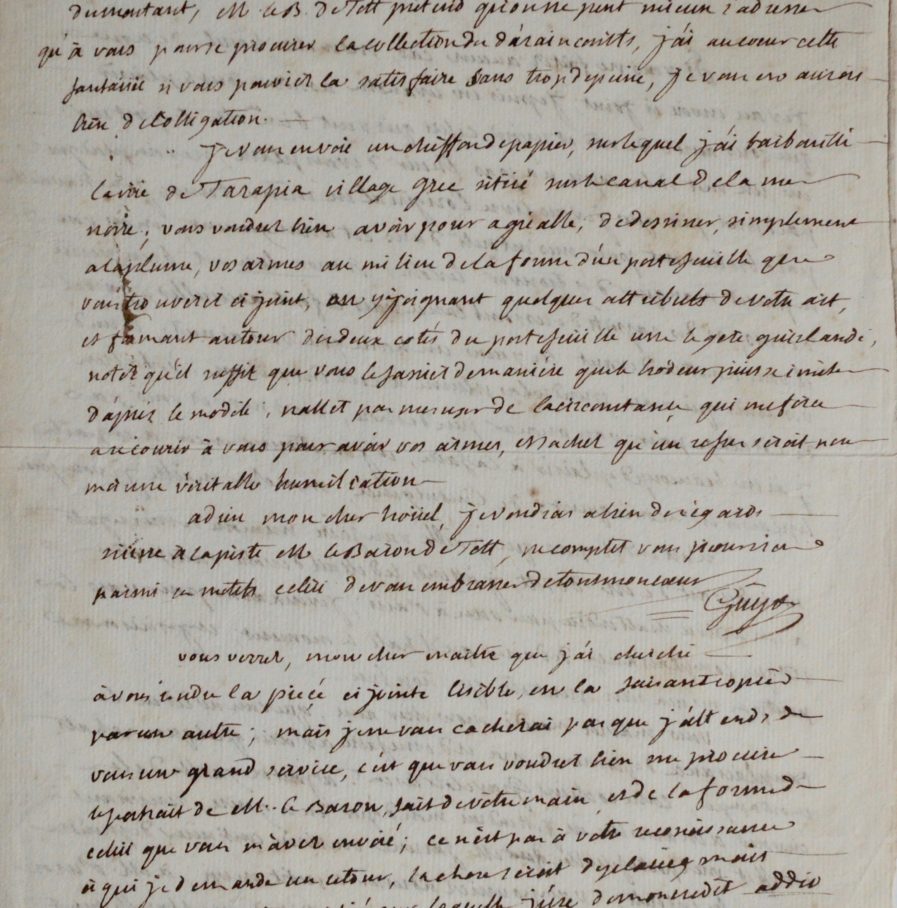 du montant, M. le B. de Tott pretend qu'on ne peut mieux s'adresser
qu'à vous pour se procurer la collection du d'arain conitts, j'ai au coeur cette
fantaisie si vous pouviez la satisfaire sans trop de peine, je vous en aurois
bien de l'obligation.
Je vous envoie un chiffon de papier, sur lequel j'ai barbouillé
la vüe de Tarapia village grec situé sur le canal de la mer
noire; vous voudrez bien avoir pour agréable, de dessiner, simplement
a la plume, vos armes au milieu de la forme d'un portefeuille que
vous trouverez ci joint, en y joignant quelques attributs de votre art,
et formant autour des deux cotés du portefeuille une legere guirlande,
notéz qu'il suffit que vous le fassiez de maniére que le brodeur puisse imiter
d'apres le modéle, n'allez pas m'user de la circonstance qui me fera
recourir à vous pour avoir vos armes, et sachez qu'un refus seroit pour
moi une véritable humiliation
adieu mon cher hoüel, je voudrois a bien des égards
suivre à la piste M. le Baron de Tott, ne comptez vous pour rien
parmi ces motifs celui de vous embrasser de tout mon coeur
Guys
vous verrez, mon cher maitre que j'ai cherché
à vous rendre la piéce ci jointe lisible, en la faisant copier
par un autre; mais je ne vous cacherai pas que j'attends de
vous un grand service, c'est que vous voudrez bien me procurer
le portrait de M. le Baron, fait de votre main et de la forme de
celui que vous m'avez envoié; ce n'est pas à votre reconoissance
à qui je demande un retour, la chose seroit déplacée mais
laquelle j'use de mon credit addio